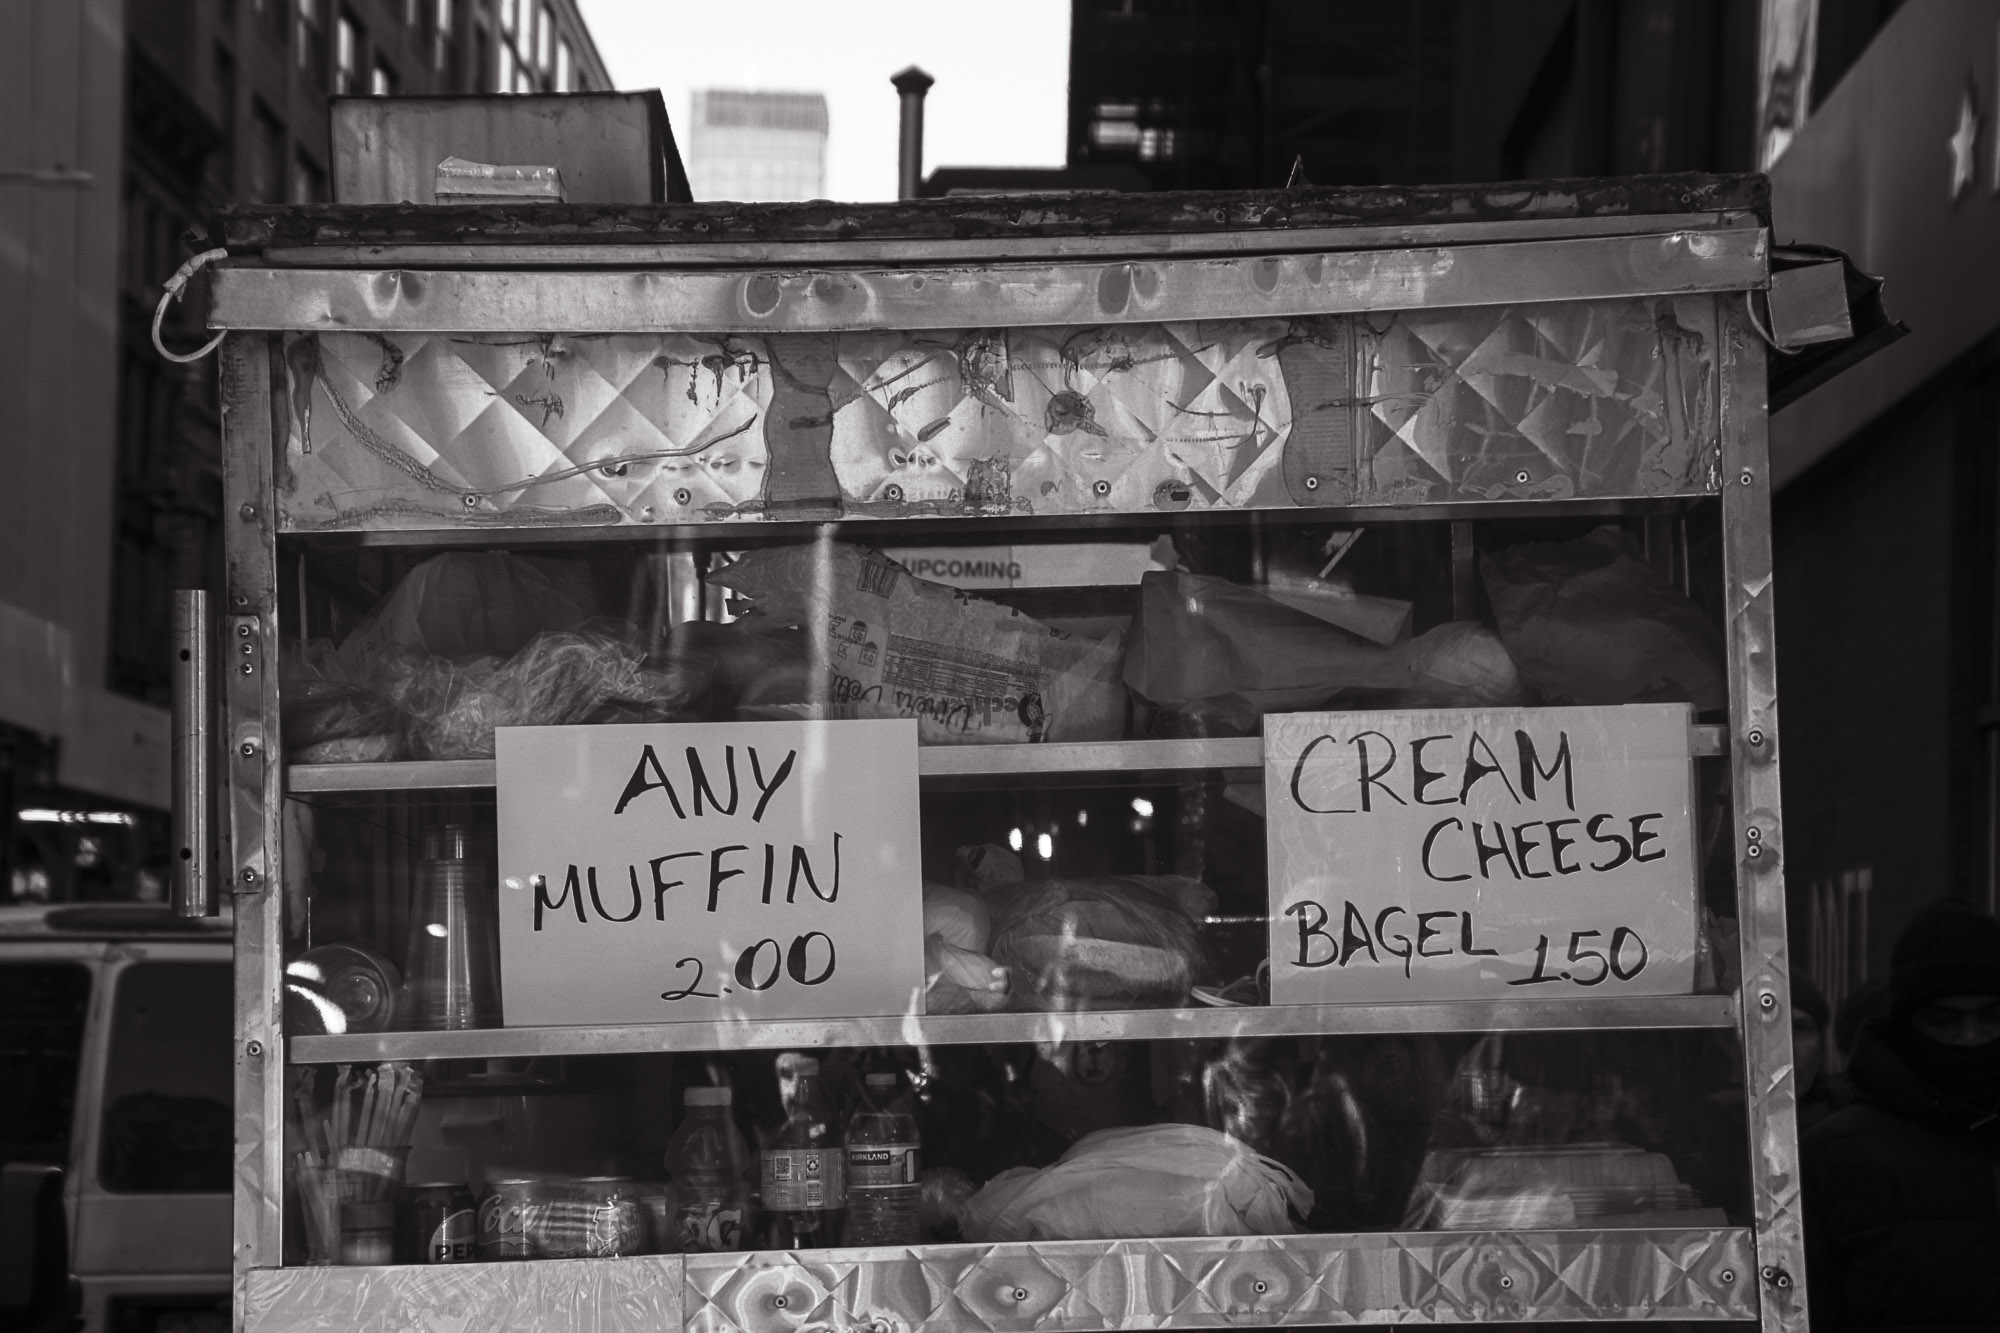 UPCOMING
ANY
MUFFIN
2.00
CREAM
CHEESE
BAGEL 1.50
PEP
Coca
KIRKLAND